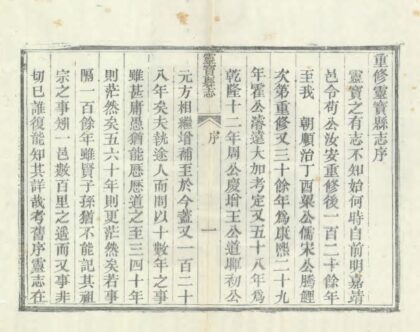 重修靈寶縣志序
靈寶之有志不知始何時自前明嘉靖
邑令苟公汝安重修後一百二十餘年
至我　朝順治丁酉梁公儒宋公騰鯉
次第重修又三十餘年為康熙二十九
年霍公濬遠大加考定又五十八年為
乾隆十二年周公慶增王公道暉初公
靈寶縣志
序
一
元方相繼增補至於今蓋又一百二十
八年矣夫執途人而問以十數年之事
雖甚庸愚猶能歷歷道之至三四十年
則茫然矣五六十年則更茫然矣若事
隔一百餘年雖賢子孫猶不能記其祖
宗之事矧一邑數百里之遙而又事非
切已誰復能知其詳哉考舊序靈志在